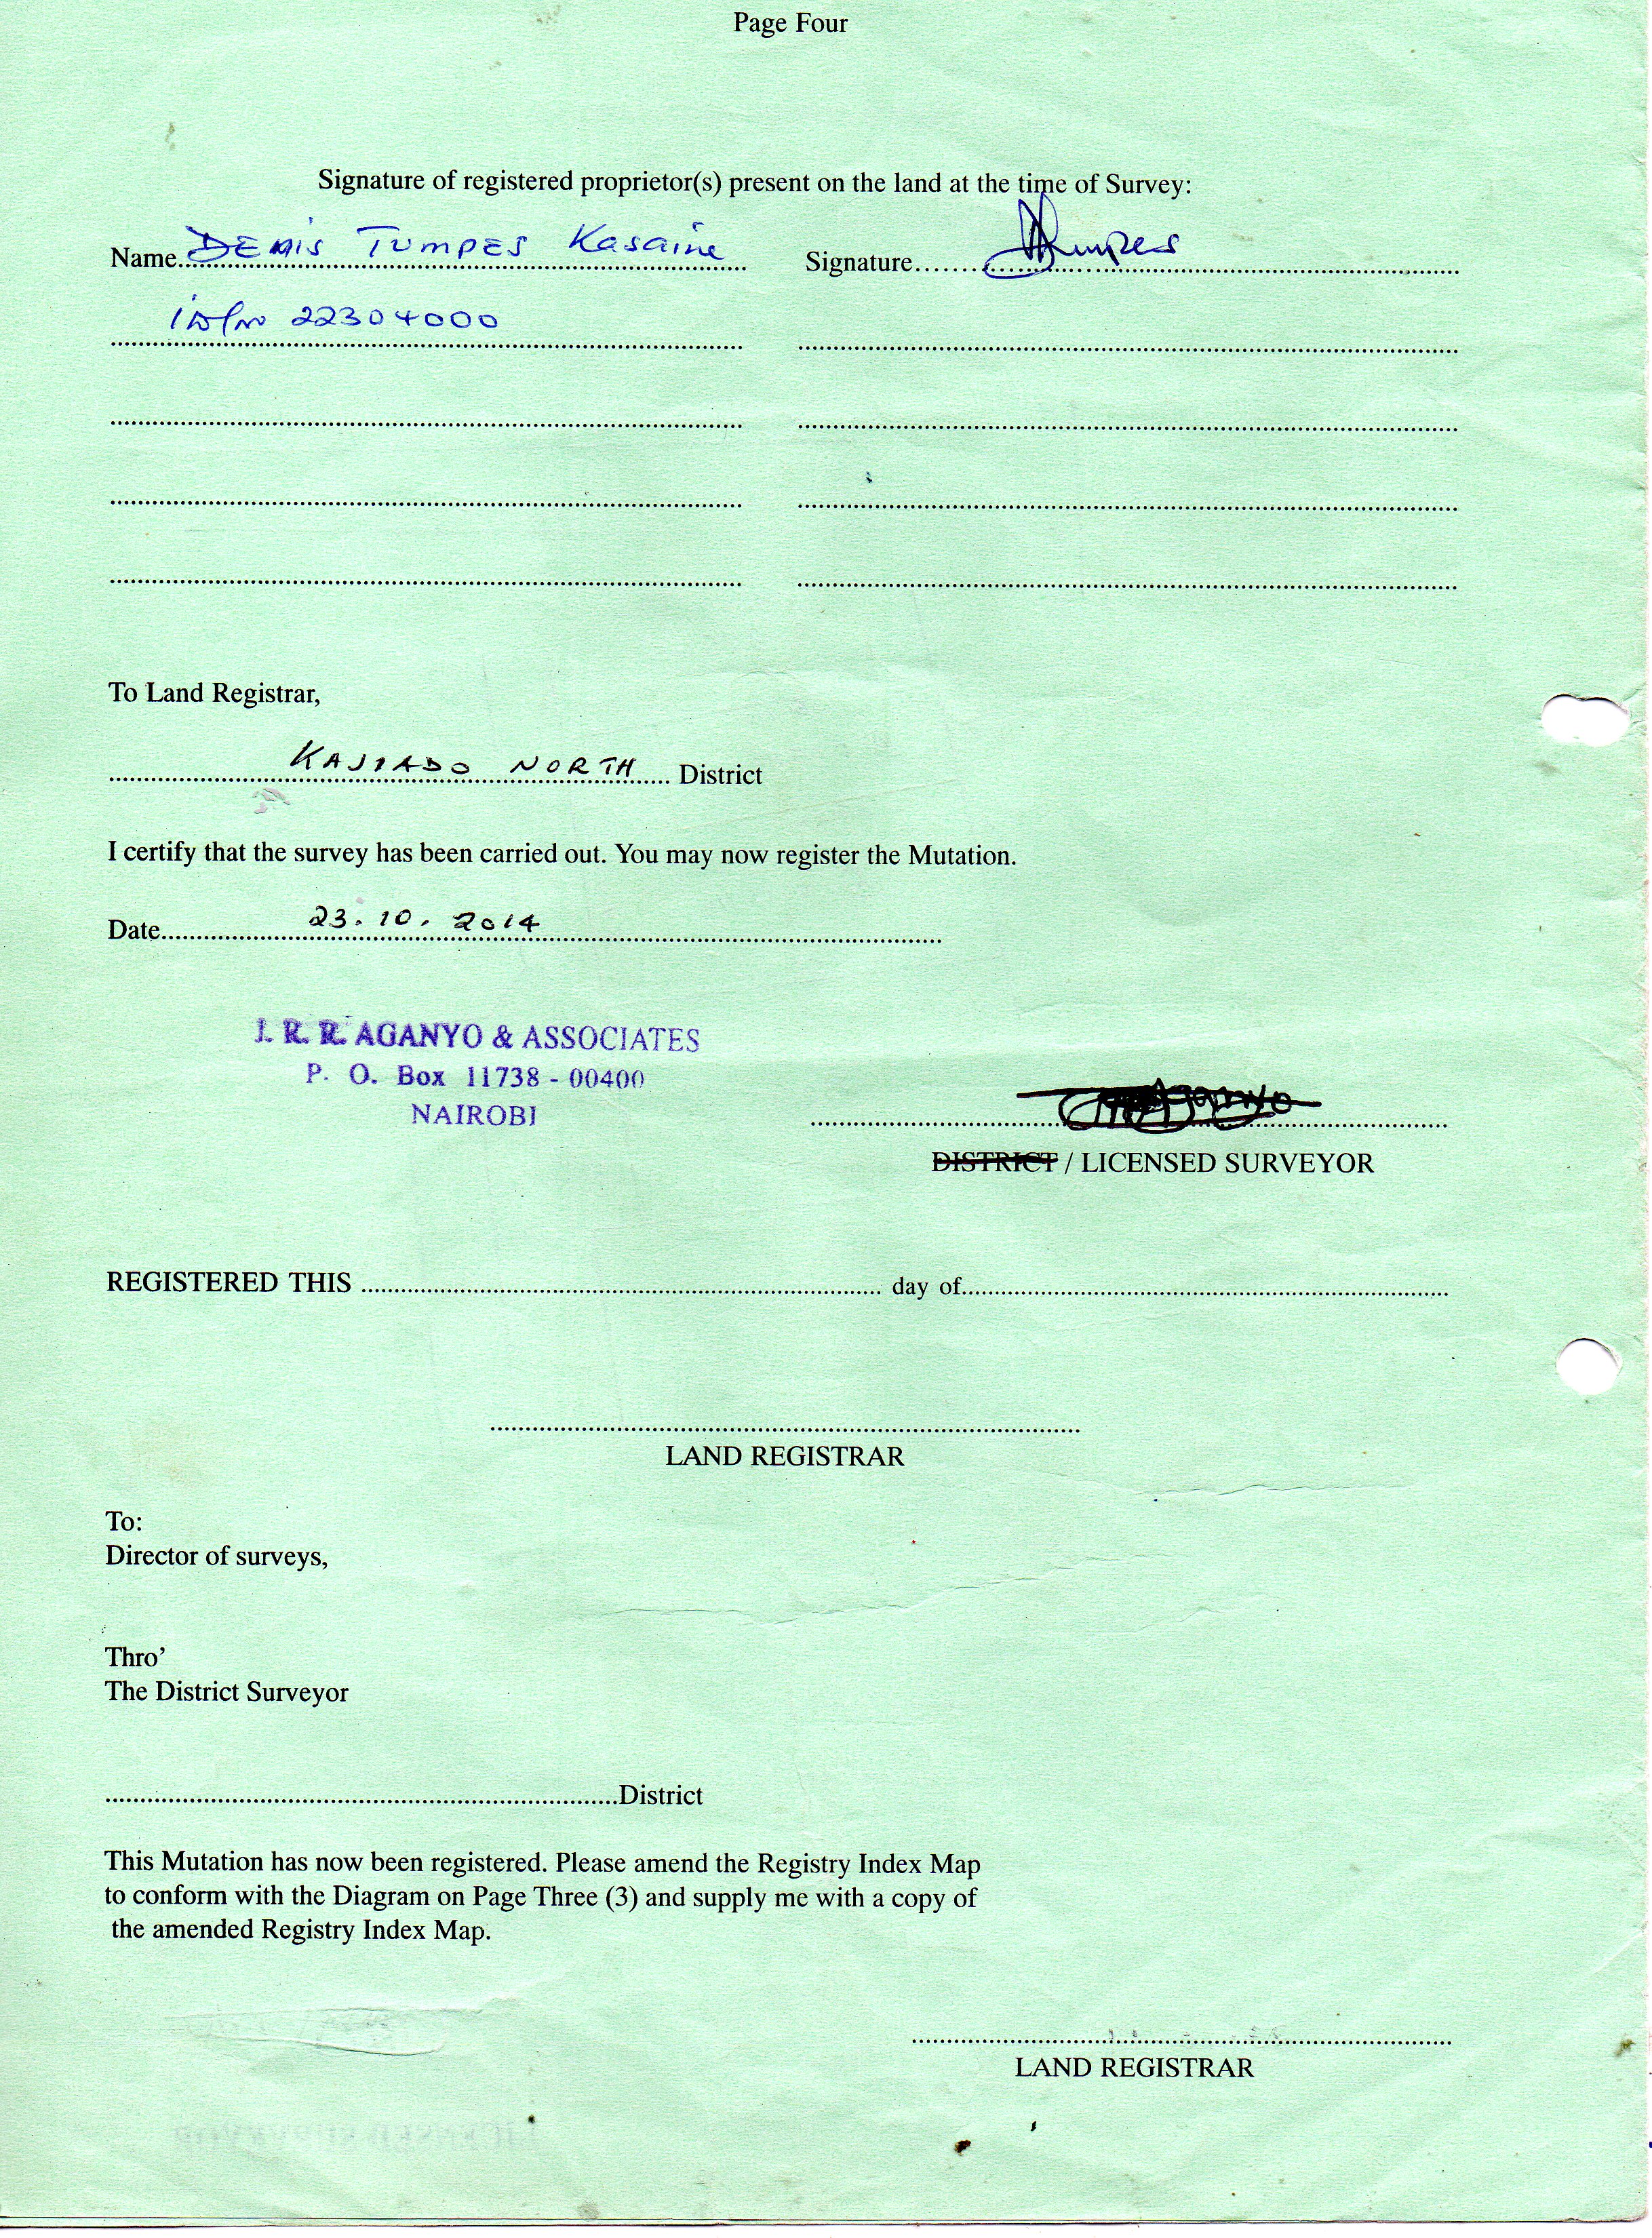 Page Four
Signature of registered proprietor(s) present on the land at the time of Survey:
Name DENIS TUMPES Kasaine Signature
22304000
To Land Registrar,
KAJIADO NORTH District
I certify that the survey has been carried out. You may now register the Mutation.
Date 23.10.2014
J. R. R. AGANYO & ASSOCIATES
P. O. Box 11738 - 00400
NAIROBI
DISTRICT / LICENSED SURVEYOR
REGISTERED THIS day of
LAND REGISTRAR
To:
Director of surveys,
Thro’
The District Surveyor
District
This Mutation has now been registered. Please amend the Registry Index Map
to conform with the Diagram on Page Three (3) and supply me with a copy of
the amended Registry Index Map.
LAND REGISTRAR